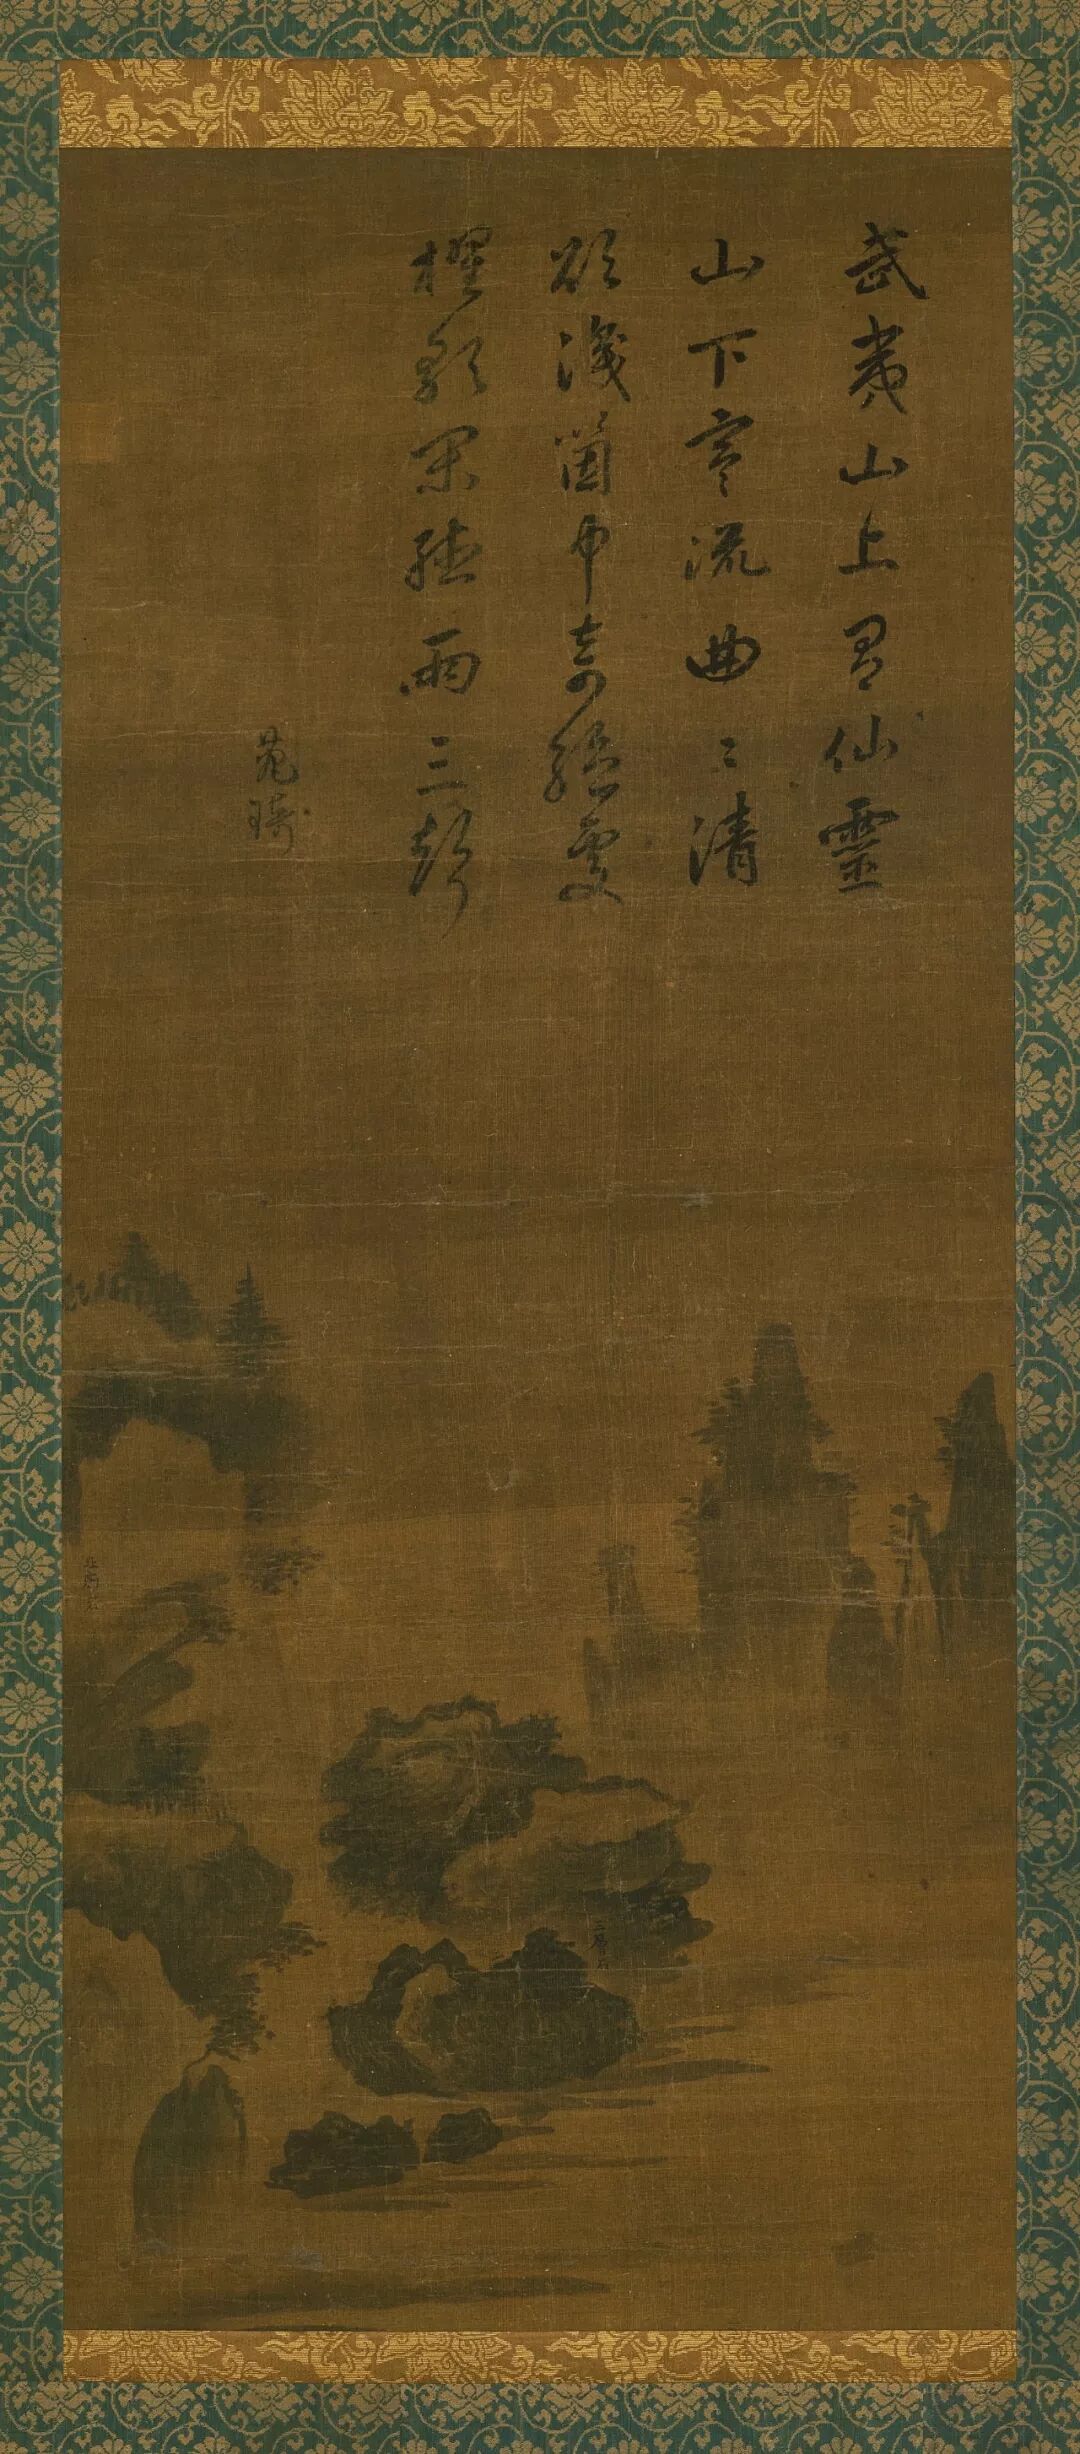 武夷山上有仙靈
山下寒流曲〻清
欲識箇中奇絕處
櫂歌閑聽兩三聲